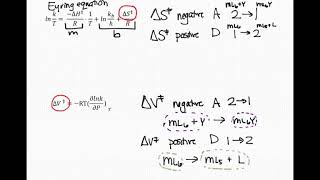 Eyring equation
ln k/T = -ΔH‡/R 1/T + ln kb/h + ΔS‡/R
m b
ΔS‡ negative A 2→1
mL6+Y mL6Y
ΔS‡ positive D 1→2
mL6 mL5+L
ΔV‡ = -RT(∂lnk/∂P)T
ΔV‡ negative A 2→1
mL6 + Y → mL6Y
ΔV‡ positive D 1→2
mL6 → mL5 + L